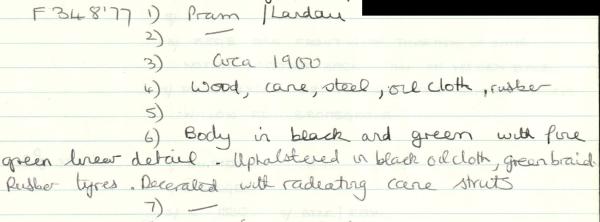 F348'77 1) Pram / Landau
2) —
3) Circa 1900
4) Wood, cane, steel, oil cloth, rubber
5)
6) Body in black and green with fine
green linear detail. Upholstered in black oilcloth, green braid.
Rubber tyres. Decorated with radiating cane struts
7) —